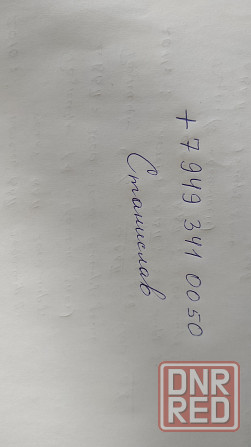 +7 949 341 0050
Станислав
DNR
RED